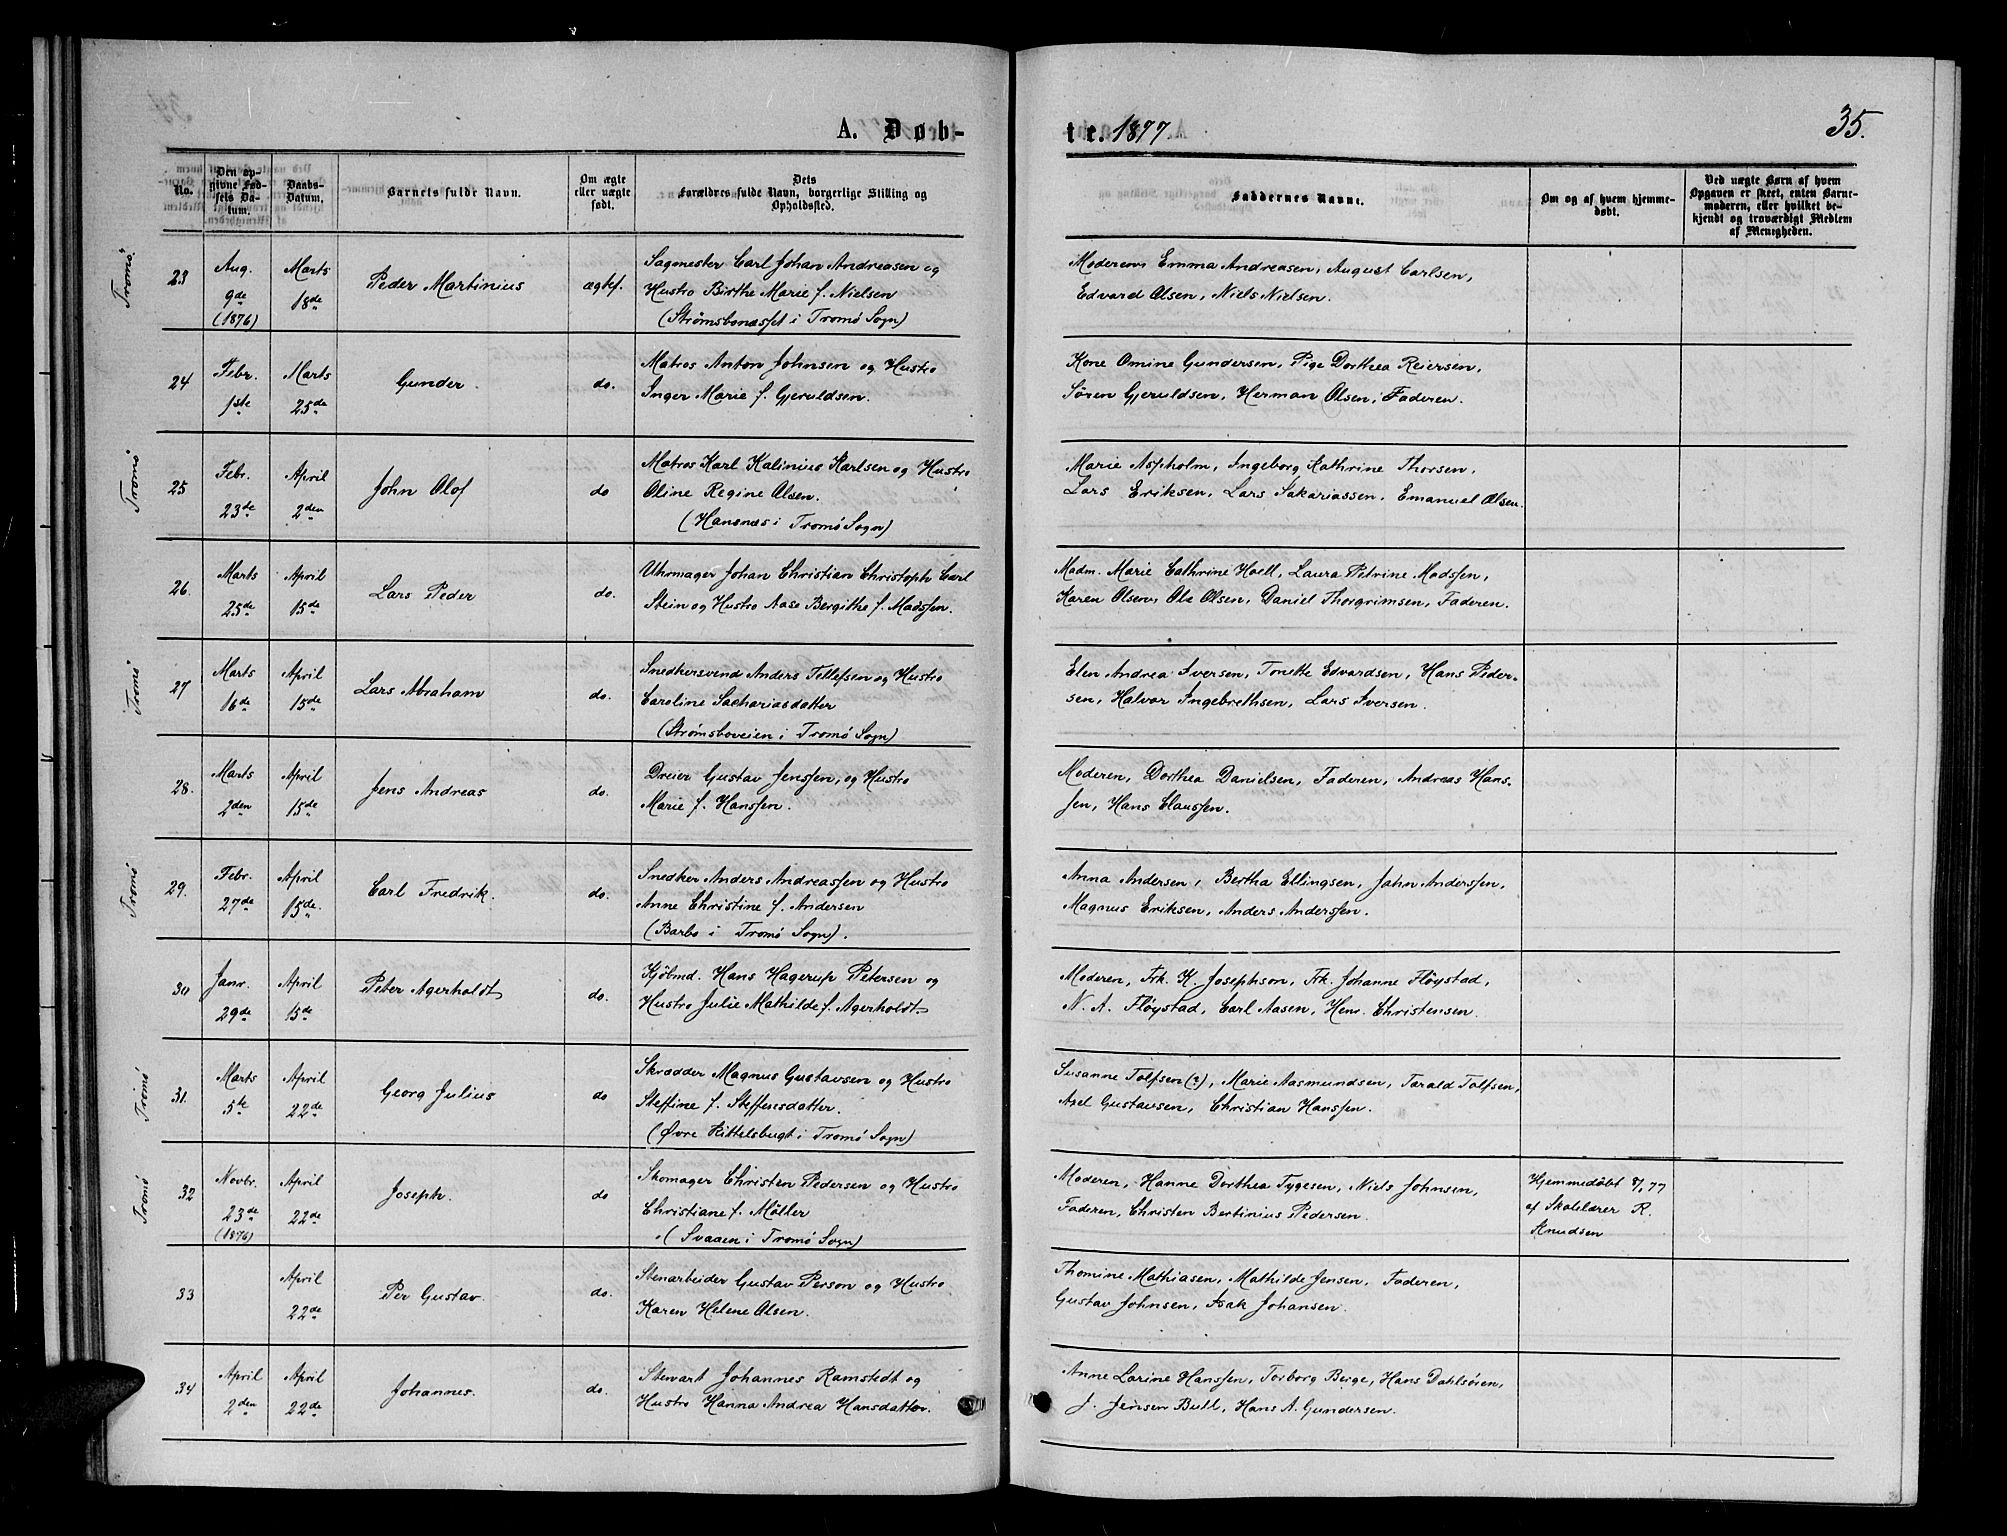 A. Døb-
te. 1877
35.
No.
Den op-
givne Fød-
sels Da-
tum.
Daabs-
Datum.
Barnets fulde Navn.
Om ægte
eller uægte
født.
Dets
Forældres fulde Navn, borgerlige Stilling og
Opholdssted.
Faddernes Navne.
Om og af hvem hjemme-
døbt.
Ved uægte Børn af hvem
Opgaven er skeet, enten Barne-
moderen, eller hvilket be-
kjendt og troværdigt Medlem
af Menigheden.
Tromø
23
Aug.
9de
(1876)
Marts
18de
Peder Martinius
ægtef.
Sagmester Carl Johan Andreasen og
Hustro Birthe Marie f. Nielsen
(Strømsbonæsset i Tromø Sogn)
Moderen, Emma Andreasen, August Carlsen,
Edvard Olsen, Niels Nielsen.
24
Febr.
1ste
Marts
25de
Gunder.
do.
Matros Anton Johnsen og Hustro
Inger Marie f. Gjeruldsen.
Kone Omine Gundersen, Pige Dorthea Reiersen,
Søren Gjeruldsen, Herman Olsen, Faderen.
Tromø
25
Febr.
23de
April
2den
John Olof
do
Matros Karl Kalinius Karlsen og Hustro
Oline Regine Olsen.
(Hansnæs i Tromø Sogn)
Marie Aspholm, Ingeborg Kathrine Thorsen,
Lars Eriksen, Lars Sakariassen, Emanuel Olsen.
26.
Marts
25de
April
15de
Lars Peder
do.
Uhrmager Johan Christian Christoph Carl
Stein og Hustro Aase Bergithe f. Madssen.
Madm. Marie Cathrine Hoell, Laura Petrine Madssen,
Karen Olsen, Ole Olsen, Daniel Thorgrimsen, Faderen.
Tromø
27
Marts
16de
April
15de
Lars Abraham
do.
Snedkersvend Anders Tellefsen og Hustro
Caroline Sachariasdatter
(Strømsboveien i Tromø Sogn)
Elen Andrea Iversen, Tonette Edvardsen, Hans Peder-
sen, Halvor Ingebrethsen, Lars Iversen.
28.
Marts
2den
April
15de
Jens Andreas
do.
Dreier Gustav Jenssen, og Hustro
Marie f. Hanssen.
Moderen, Dorthea Danielsen, Faderen, Andreas Hans-
sen, Hans Claussen.
Tromø
29.
Febr.
27de
April
15de.
Carl Fredrik.
do.
Snedker Anders Andreassen og Hustro
Anne Christine f. Andersen
(Barbo i Tromø Sogn).
Anna Andersen, Bertha Ellingsen, John Anderssen,
Magnus Eriksen, Anders Anderssen.
30
Janr.
29de
April
15de
Peter Agerholdt
do.
Kjøbmd. Hans Hagerup Petersen og
Hustro Julie Mathilde f. Agerholdt
Moderen, Frk. H. Josephson, Frk. Johanne Fløystad,
N. A. Fløystad, Carl Aasen, Henr. Christensen.
Tromø
31.
Marts
5te
April
22de
Georg Julius
do
Skrædder Magnus Gustavsen og Hustro
Steffine f. Steffensdatter.
(Øvre Kittelsbugt i Tromø Sogn)
Susanne Tolfsen (2), Marie Aasmundsen, Tarald Tolfsen,
Axel Gustavsen, Christian Hanssen.
Tromø
32
Novbr.
23de
(1876)
April
22de
Joseph.
do
Skomager Christen Pedersen og Hustro
Christiane f. Møller
(Svaaen i Tromø Sogn)
Moderen, Hanne Dorthea Tygesen, Niels Johnsen,
Faderen, Christen Bertinius Pedersen.
Hjemmedøbt 8/1 77
af Skolelærer R.
Knudsen
33
April
22de
Per Gustav.
do.
Stenarbeider Gustav Person og Hustro
Karen Helene Olsen.
Thomine Mathiasen, Mathilde Jensen, Faderen,
Gustav Johnsen, Isak Johansen.
34
April
2den
April
22de
Johannes.
do.
Stewart Johannes Ramstedt og
Hustro Hanna Andrea Hansdatter.
Anne Larine Hanssen, Torborg Berge, Hans Dahlsøren,
J. Jensen Bull, Hans A. Gundersen.